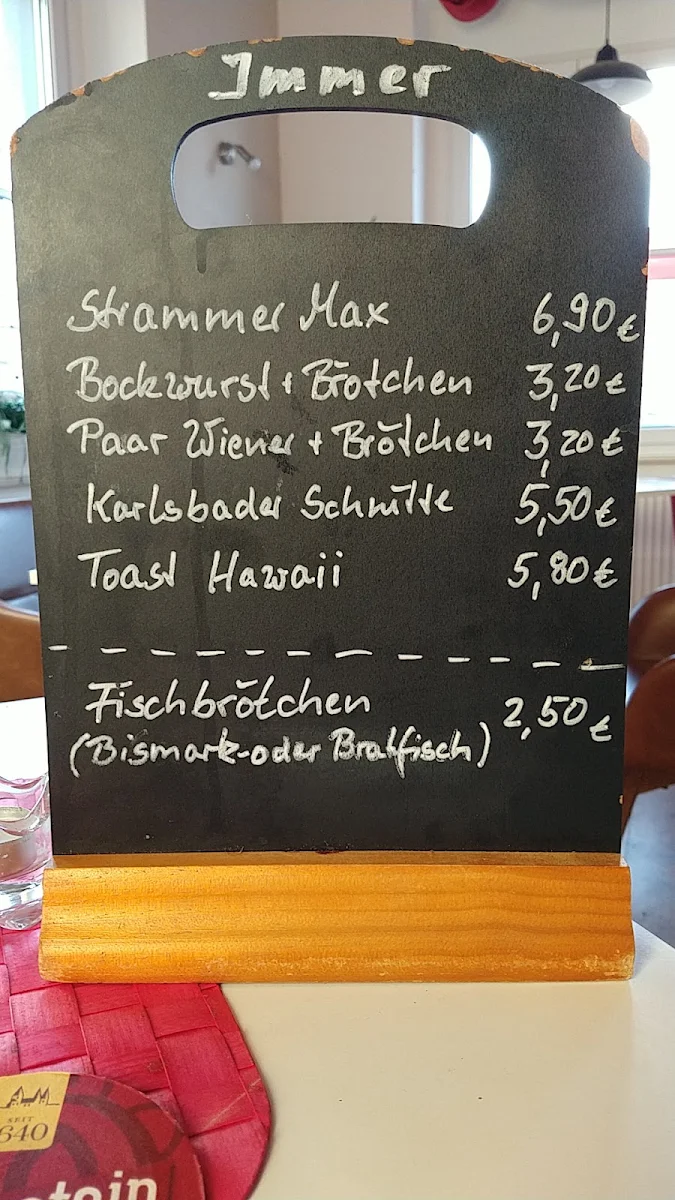 Immer
Strammer Max 6,90 €
Bockwurst + Brötchen 3,20 €
Paar Wiener + Brötchen 3,20 €
Karlsbader Schnitte 5,50 €
Toast Hawaii 5,80 €
Fischbrötchen 2,50 €
(Bismark-oder Bratfisch)
SEIT
1640